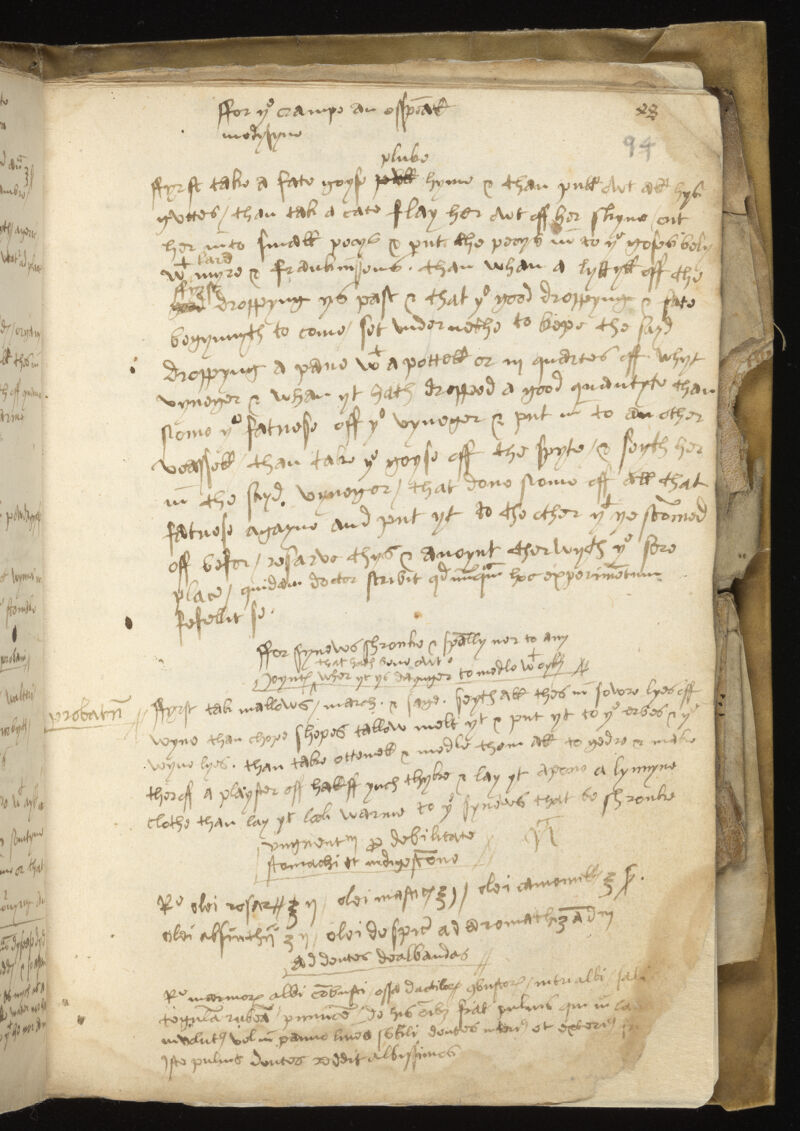 ffor yͤ crampe an espeall
medysyne
94
plube
ffyrst take a fate goyse hyme & than pull owt all hys
guttes / than tak a cate flay her owt off her skyne cut
her into small pecys & put the pecys in to yͤ goses bely
lard
wᵗ myre & frankinsens . than whan a lyttyll off the
fyrst
droppyng ys past & that yͤ good droppynge & fate
begynnyth to come / set undernethe to kepe the sayd
droppyng a pane wᵗ a pottell or iij quartes off whyt
vyneger & whan yt hath dropped a good quantyte than
skome yͤ fatnese off yͤ vyneger & put in to an other
veassell / than take yͤ goyse off the spyte / & seyth her
in the sayd vyneger / that done skome off all that
fatnese agayne and put yt to the other yᵗ ye scomed
off befor / resarve thys & anoynt therwyth yͤ sore
place / quidam doctor scribit qd nunquam hoc experimentum
fefellit se .
ffor synews shronke & specally ner to any
that hath bene owt
Joynte wher yt ys daynger to medle wᵗ oyles
probatum
ffyrst tak mallows / march . & sage . seyth all thes in sowre lyes off
wyne than chope shepes tallow melt yt & put yt to yͤ erbes & yͤ
wyne lyes . than take otemell & medle them all to gedre & make
theroff a playster off halff ynch thyke & lay yt apone a lynnyne
clothe than lay yt luk warme to yͤ synewes that be shronke
unguentum pro debilitate
stomachi et indigestione
Rͤ olei rosar ℥ ij / olei mastic ℥ j / olei camomill ℥ ß .
olei absinthii ℥ ij / olei de spica ad aromath
ad dentes dealbandos
Rͤ marmor albi combusti / ossa dactilor combustor / nitri albi / sal
tegulam rubeam / pumice / de his omnibus fiat pulvis qui in
involutus vel in panno lineo subtili dentes interius et exterius
Iste pulvis dentes reddit albissimos